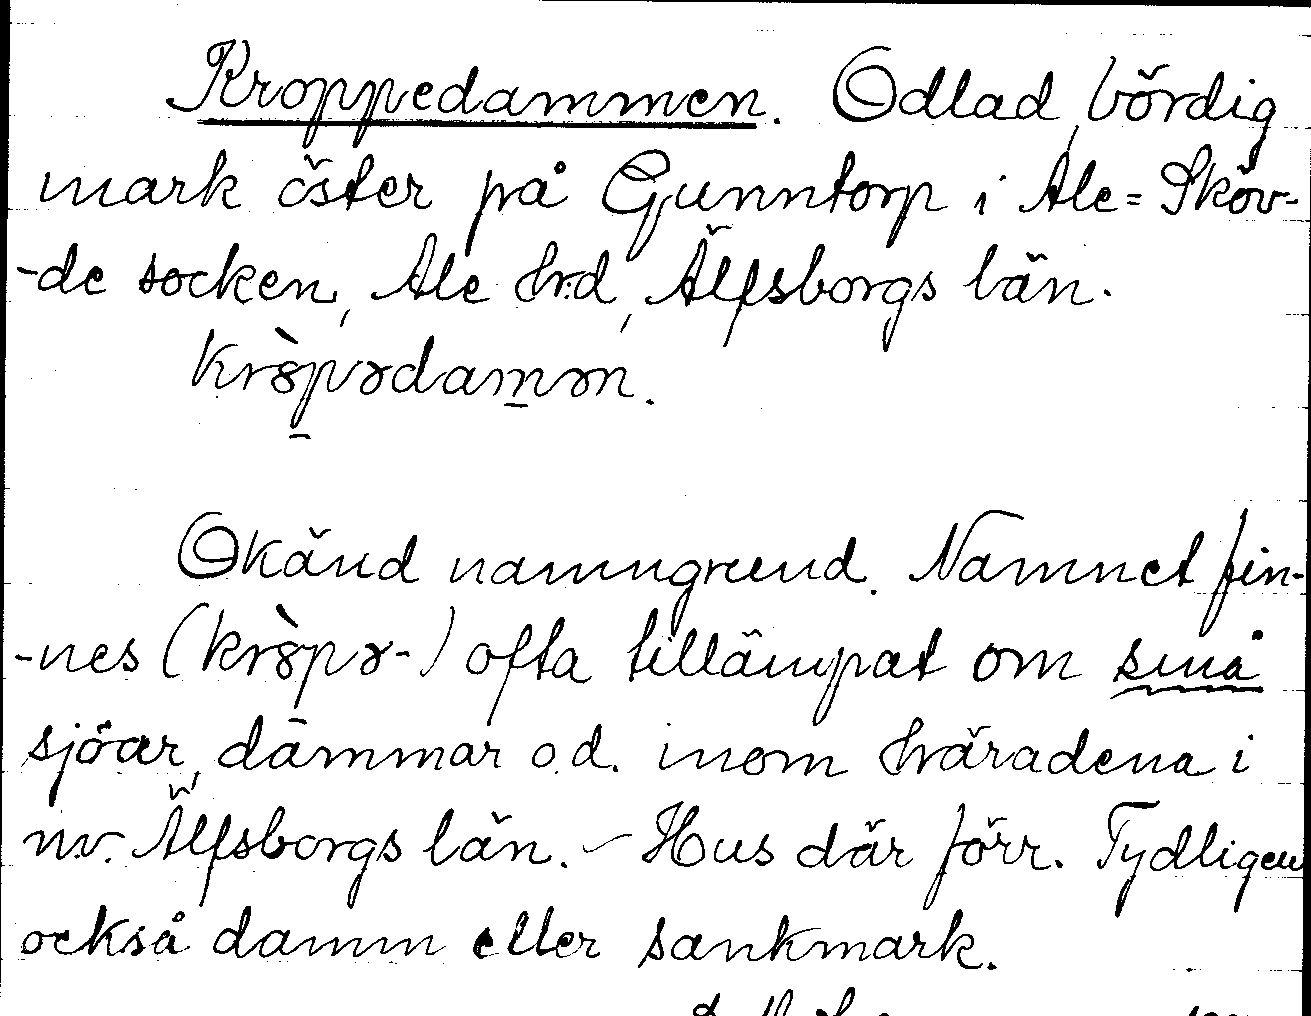 Kroppedammen. Odlad, bördig
mark öster på Gunntorp i Ale=Sköv-
-de socken, Ale Hrd, Älfsborgs län.
Okänd namngrund. Namnet fin-
-nes ( ) ofta tillämpat om små
sjöar, dammar o.d. inom häradena i
nv. Älfsborgs län. – Hus där förr. Tydligen
också damm eller sankmark.